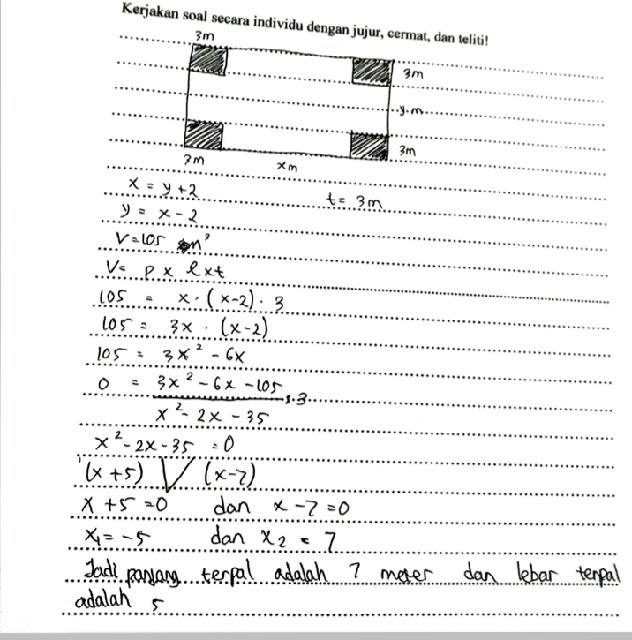 Kerjakan soal secara individu dengan jujur, cermat, dan teliti!
3m
3m
y m
3m
3m
x m
x = y + 2
t = 3m
y = x - 2
V = 105 m³
V = p x l x t
105 = x · (x-2) · 3
105 = 3x · (x-2)
105 = 3x² - 6x
0 = 3x² - 6x - 105 : 3
x² - 2x - 35
x² - 2x - 35 = 0
(x+5) V (x-7)
x + 5 = 0 dan x - 7 = 0
x₁ = -5 dan x₂ = 7
Jadi panjang terpal adalah 7 meter dan lebar terpal
adalah 5